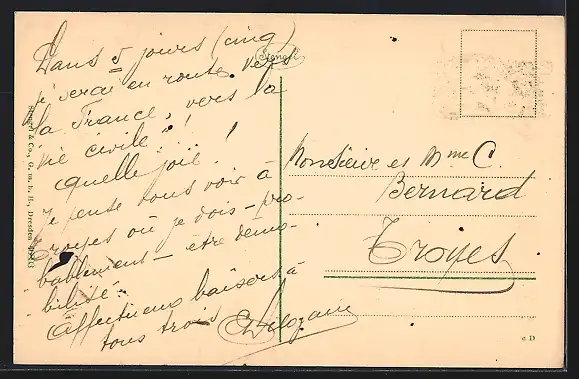 Dans 5 jours (cinq)
je serai en route vers
la France, vers la
vie civile !!
quelle joie !
Je pense vous voir à
Troyes où je dois - pro-
bablement - être démo-
bilisé.
Affectueux baisers à
tous trois
Stengel
Stengel & Co., G. m. b. H., Dresden
Monsieur et Mme C.
Bernard
Troyes
c D